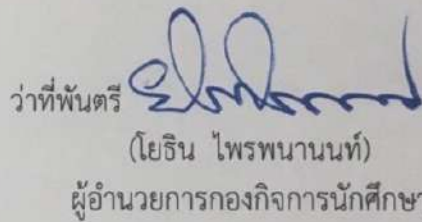 ว่าที่พันตรี
(โยธิน ไพรพนานนท์)
ผู้อำนวยการกองกิจการนักศึกษา